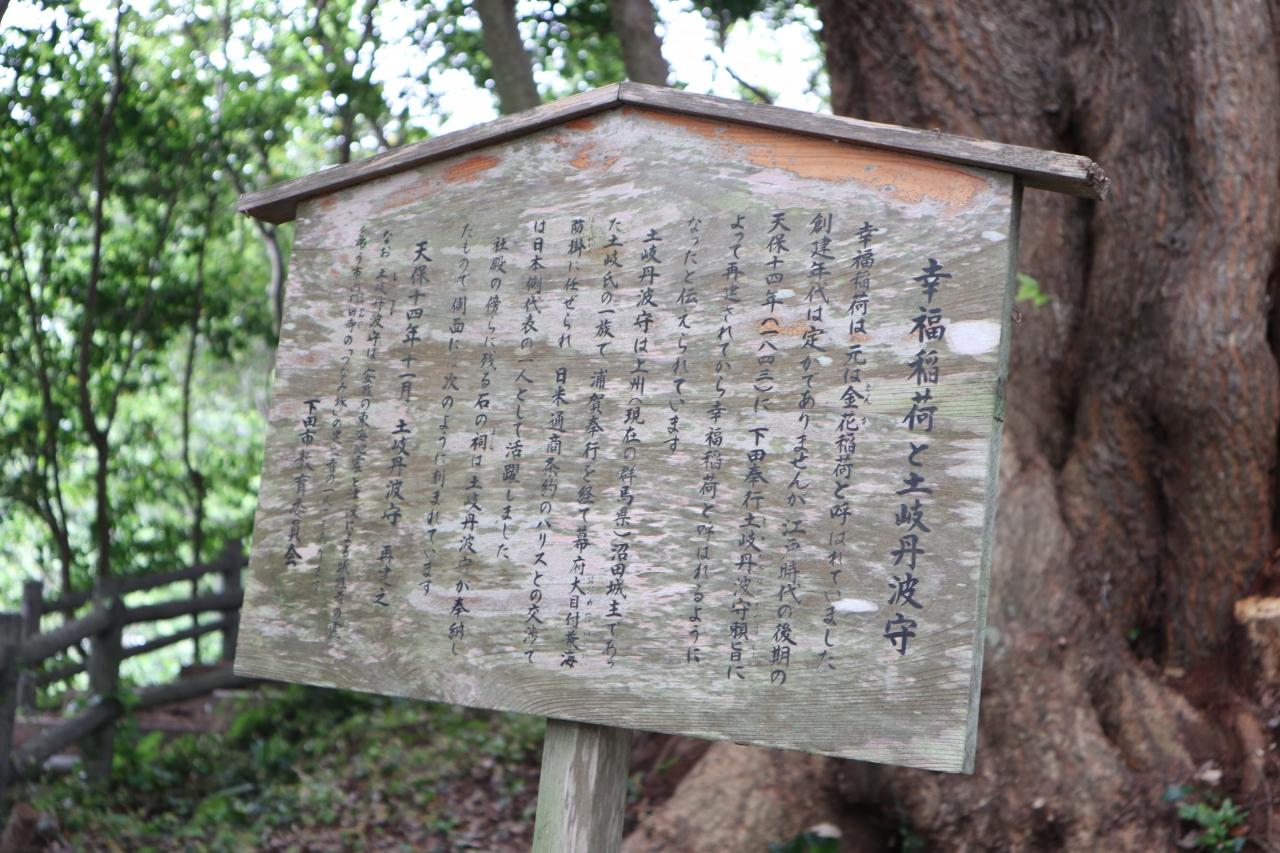 幸福稲荷と土岐丹波守
幸福稲荷は 元は金花稲荷と呼ばれていました
創建年代は定かでありませんが 江戸時代の後期の
天保十四年(一八四三)に 下田奉行土岐丹波守頼旨に
よって再建されてから幸福稲荷と呼ばれるように
なったと伝えられています
土岐丹波守は上州(現在の群馬県)沼田城主であっ
た土岐氏の一族で 浦賀奉行を経て幕府大目付兼海
防掛に任ぜられ 日米通商条約のハリスとの交渉で
は日本側代表の一人として活躍しました
社殿の傍らに残る石の祠は土岐丹波守が奉納し
たもので側面に 次のように刻まれています
天保十四年十一月 土岐丹波守 再建之
なお 土岐丹波守は安政の東海地震と津波による
下田市教育委員会